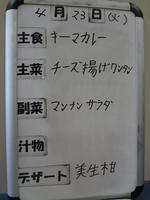 4月23日(火)
主食 キーマカレー
主菜 チーズ揚げワンタン
副菜 マンナンサラダ
汁物
デザート 美生柑